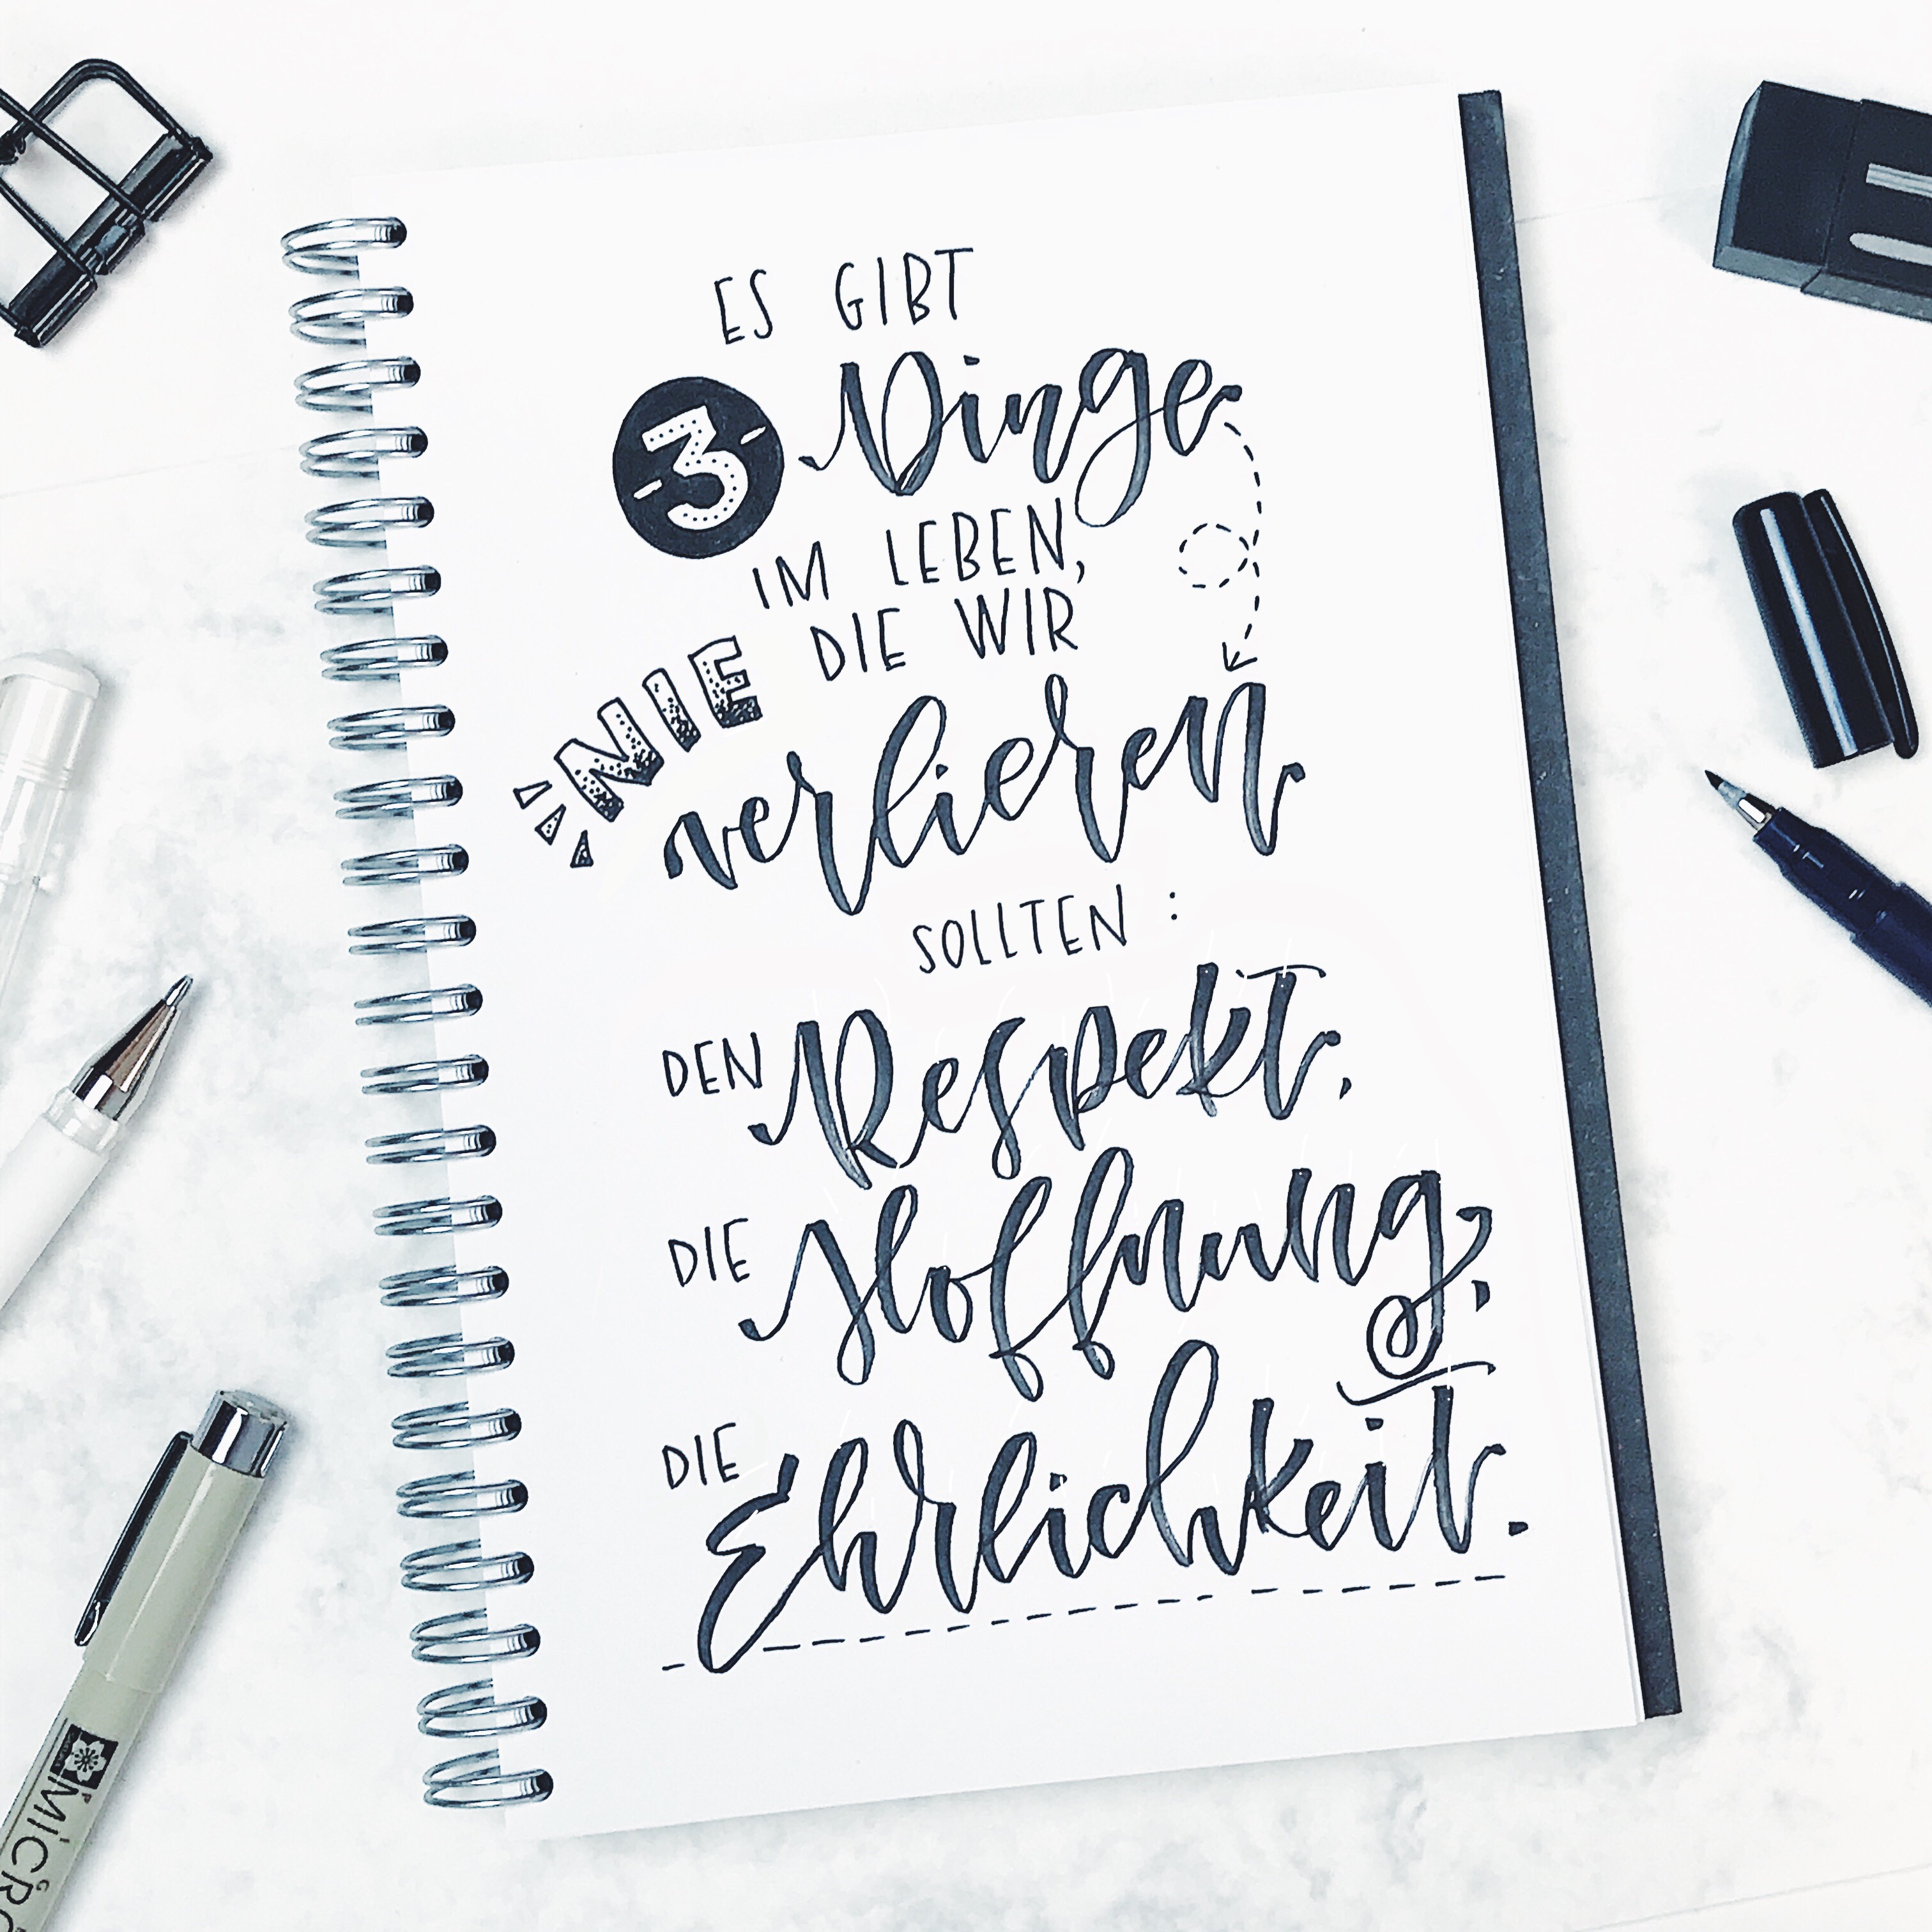 ES GIBT
3 Dinge
IM LEBEN,
DIE WIR
NIE
verlieren
SOLLTEN :
DEN Respekt,
DIE Hoffnung,
DIE Ehrlichkeit.
MICRO